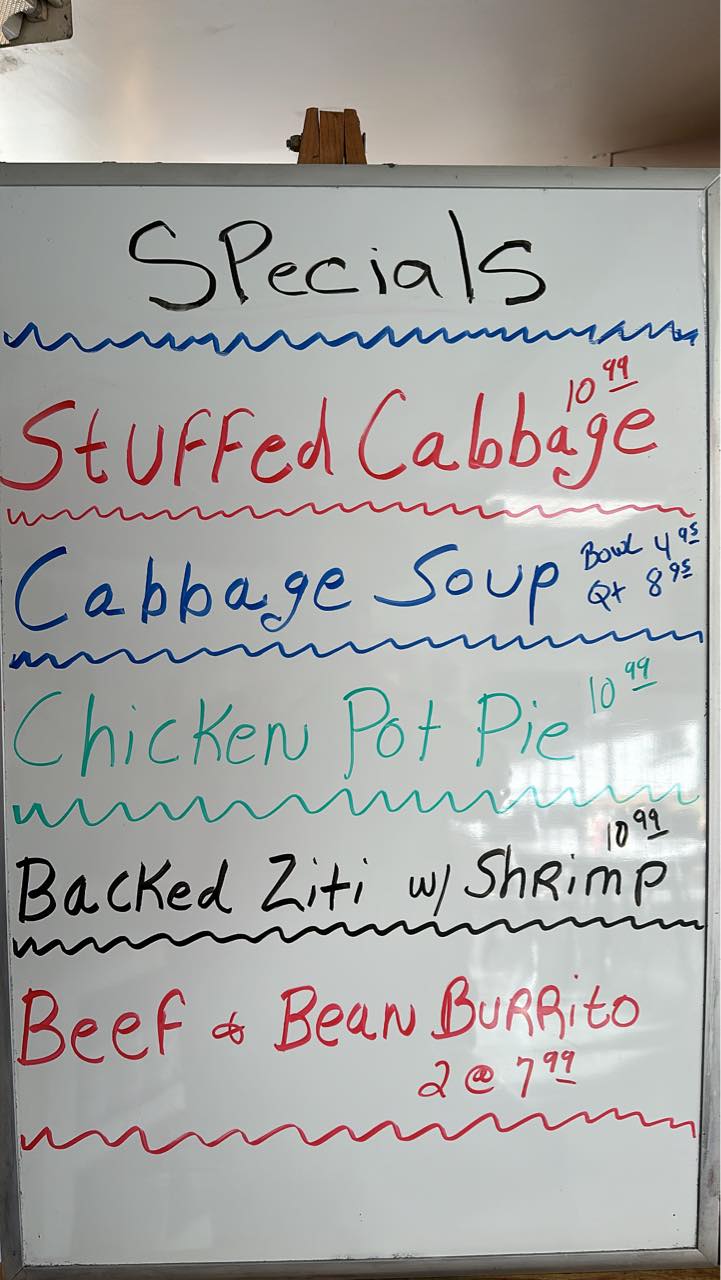 SPecials
10 99
Stuffed Cabbage
Cabbage Soup Bowl 4 95
Qt 8 95
Chicken Pot Pie 10 99
10 99
Backed Ziti w/ Shrimp
Beef & Bean Burrito
2 @ 7 99